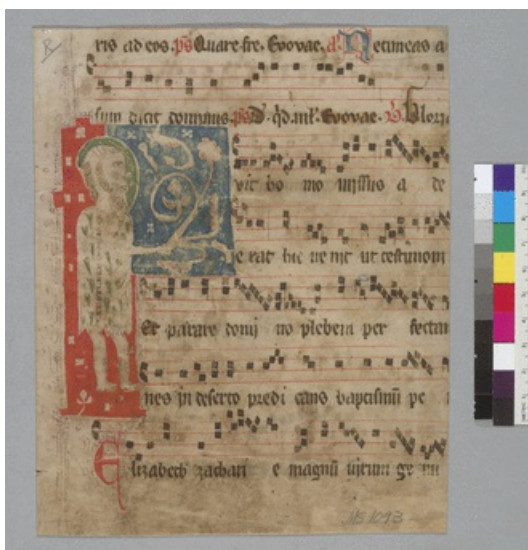 ris ad eos. ps Quare fre. Evovae. a. Ne timeas a
sum dicit dominus. ps D. qd. ml. Evovae.
vit ho mo missus a de
je rat hic ve nit ut testimoni
Et parare domi no plebem per fectam
nes in deserto predi cans baptismū pe
Elizabeth zachari e magnū virum ge nu
MS 1093